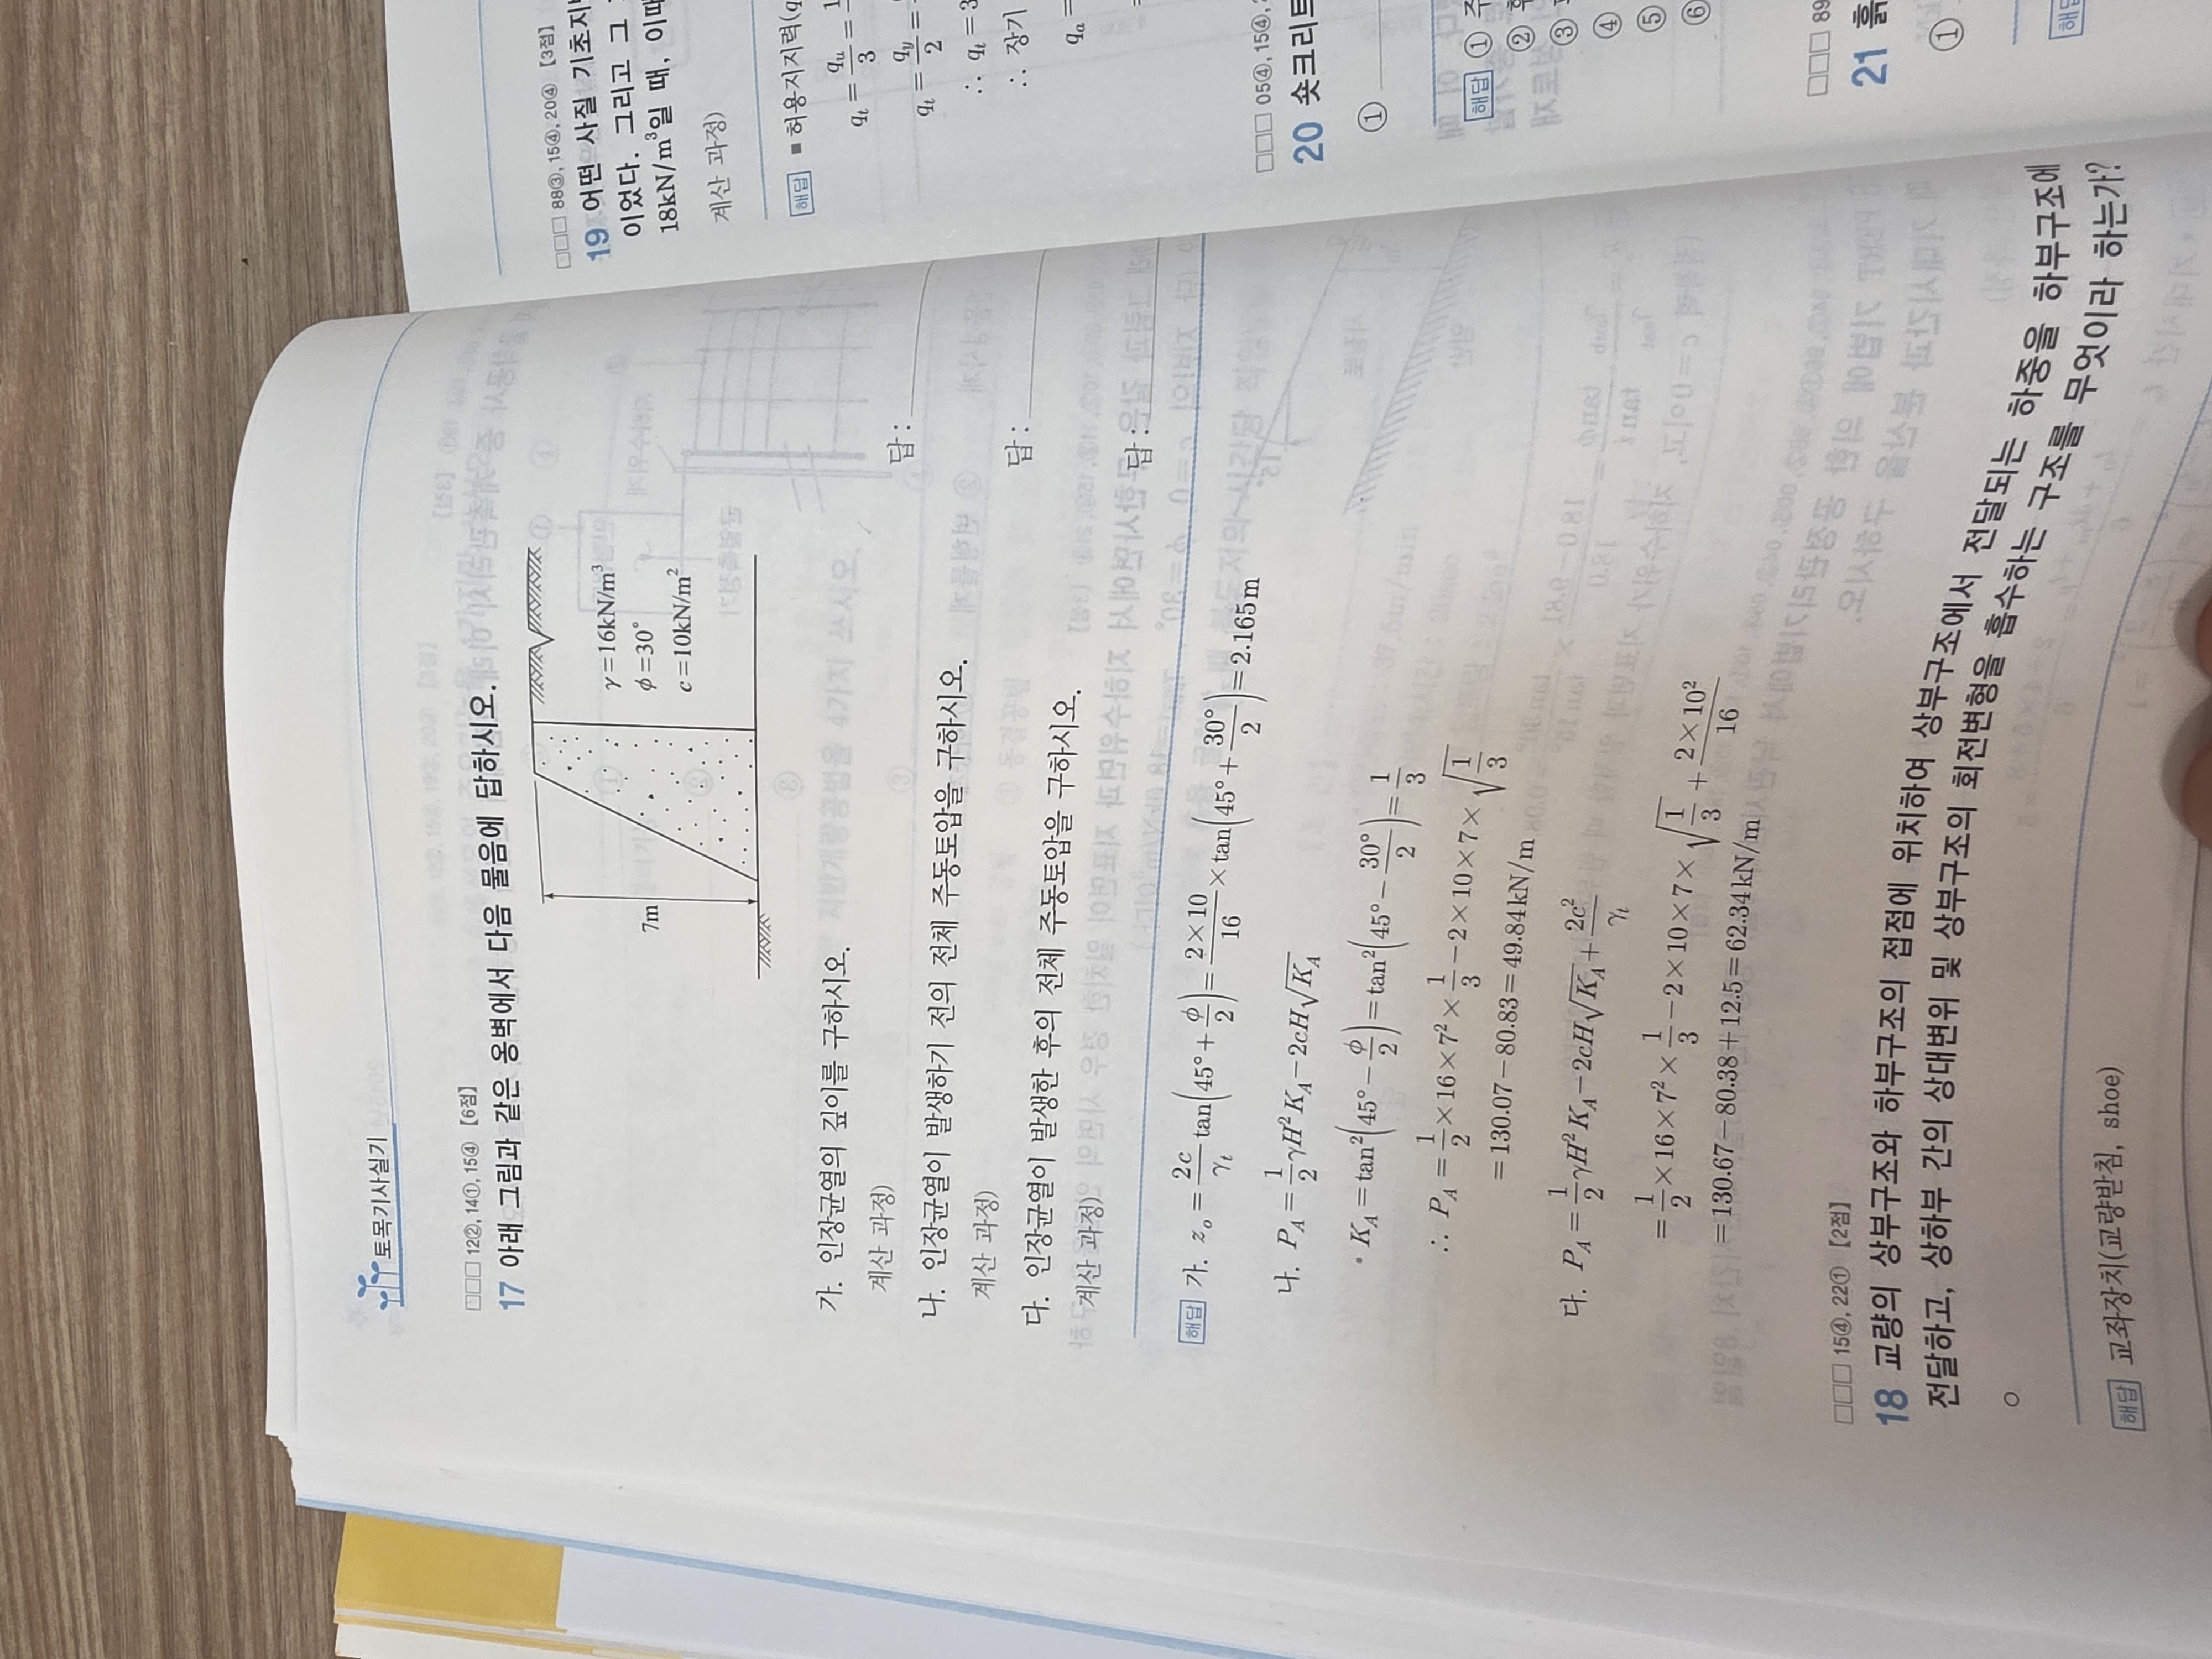 토목기사실기
□□□ 12②, 14①, 15④ 【6점】
17 아래 그림과 같은 옹벽에서 다음 물음에 답하시오.
7m
γ=16kN/m³
ϕ=30°
c=10kN/m²
가. 인장균열의 깊이를 구하시오.
계산 과정)
답:
나. 인장균열이 발생하기 전의 전체 주동토압을 구하시오.
계산 과정)
답:
다. 인장균열이 발생한 후의 전체 주동토압을 구하시오.
계산 과정)
답:
해답 가. z_o = 2c/γ_t tan(45°+ϕ/2) = 2×10/16 × tan(45°+30°/2) = 2.165m
나. P_A = 1/2 γH²K_A − 2cH√K_A
• K_A = tan²(45°−ϕ/2) = tan²(45°−30°/2) = 1/3
∴ P_A = 1/2 × 16 × 7² × 1/3 − 2×10×7×√(1/3)
= 130.07 − 80.83 = 49.84kN/m
다. P_A = 1/2 γH²K_A − 2cH√K_A + 2c²/γ_t
= 1/2 × 16 × 7² × 1/3 − 2×10×7×√(1/3) + 2×10²/16
= 130.67 − 80.38 + 12.5 = 62.34kN/m
□□□ 15④, 22① 【2점】
18 교량의 상부구조와 하부구조의 접점에 위치하여 상부구조에서 전달되는 하중을 하부구조에
전달하고, 상하부 간의 상대변위 및 상부구조의 회전변형을 흡수하는 구조를 무엇이라 하는가?
○
해답 교좌장치(교량받침, shoe)
□□□ 88③, 15④, 20④ 【3점】
19 어떤 사질 기초지
이었다. 그리고 그
18kN/m³일 때, 이때
계산 과정)
해답 ■ 허용지지력(q
q_t = q_u/3 =
q_t = q_y/2 =
∴ q_t = 3
∴ 장기
q_a =
=
□□□ 05④, 15④,
20 숏크리트
①
해답 ①
②
③
④
⑤
⑥
□□□ 89
21 흙
①
해답